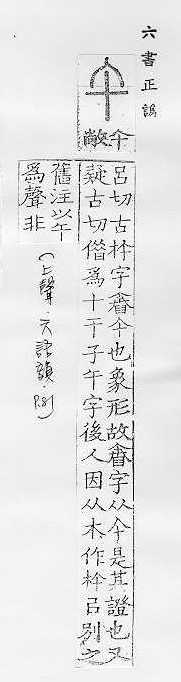 六書正譌
午敞
呂切古杵字舂午也象形故舂字从午是其證也又
疑古切借爲十干子午字後人因从木作杵㠯別之
舊注㠯午
爲聲非
(上聲·六語韻·P.81)